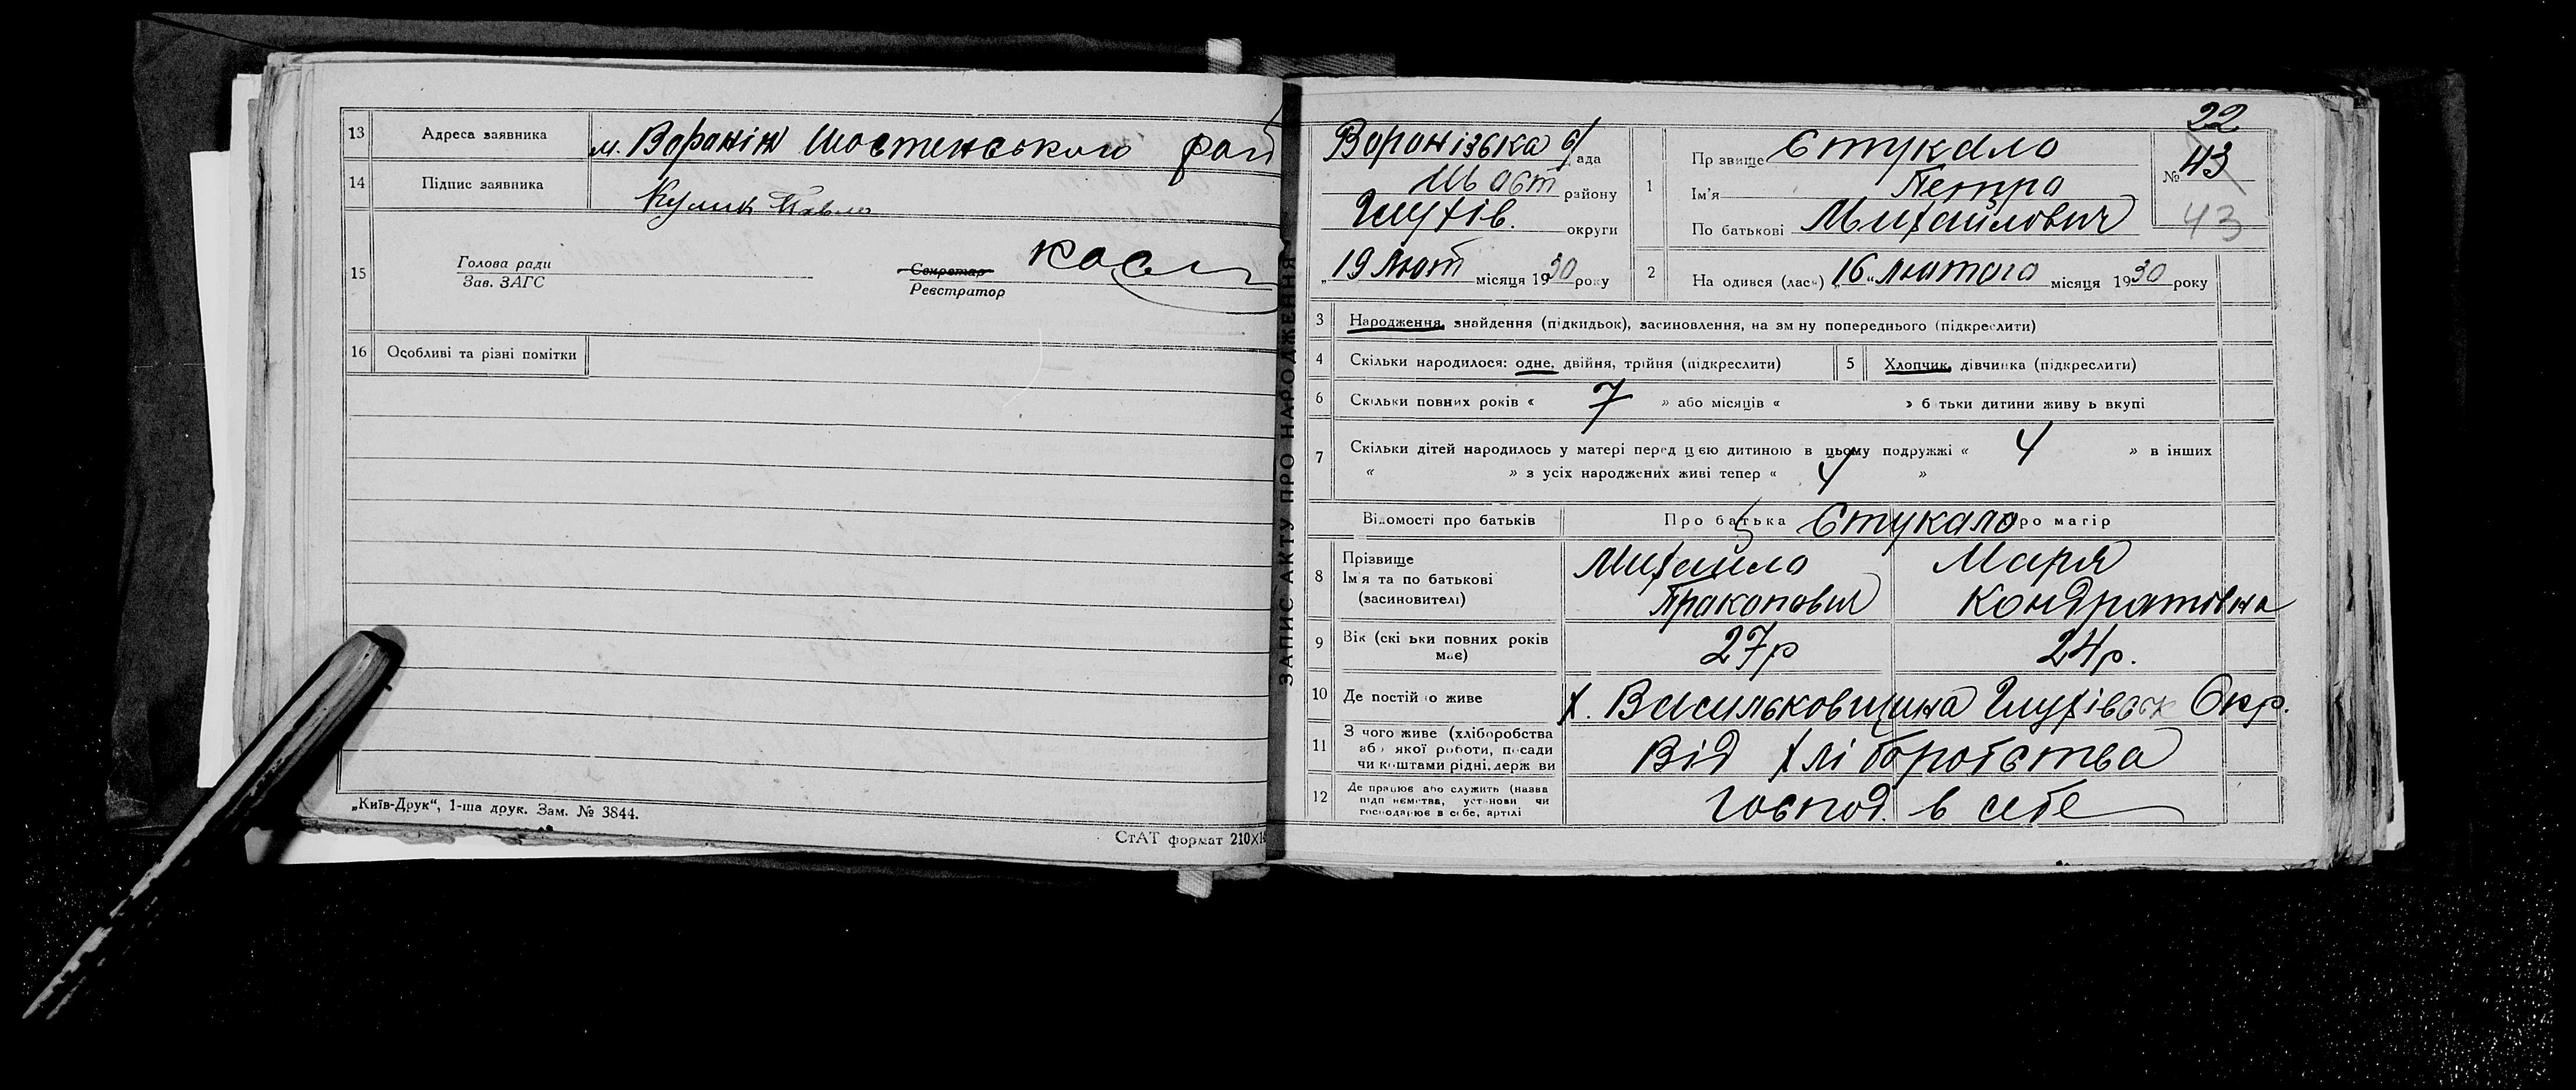 13 Адреса заявника м. Воранін Шостенського рай
14 Підпис заявника Кулик Павло
15 Голова ради
Зав. ЗАГС
Секретар
Реєстратор
16 Особливі та різні помітки
„Київ-Друк“, 1-ша друк. Зам. № 3844.
СтАТ формат 210
ЗАПИС АКТУ ПРО НАРОДЖЕННЯ
22
Воронізька с/рада
Шост району
Глухів. округи
„19 Лют місяця 1930 року
1 Прізвище Стукало
Ім'я Петро
По батькові Михайлович
№ 43
43
2 На одився (лась) „16“ лютого місяця 1930 року
3 Народження, знайдення (підкидьок), засиновлення, на зм ну попереднього (підкреслити)
4 Скільки народилося: одне, двійня, трійня (підкреслити) 5 Хлопчик, дівчинка (підкреслити)
6 Скільки повних років « 7 » або місяців « » б тьки дитини живу ь вкупі
7 Скільки дітей народилось у матері перед цєю дитиною в цьому подружжі « 4 » в інших
« » з усіх народжених живі тепер « 4 »
Відомості про батьків Про батька Стукало Про матір
8 Прізвище
Ім'я та по батькові
(засиновителі)
Михайло Маря
Пракопович Кондратовна
9 Вік (скі ьки повних років має) 27р 24р.
10 Де постій о живе х. Васильковщина Глухівськ Окр.
11 З чого живе (хліборобства
або якої роботи, посади
чи коштами рідні, держ ви
Від хліборобства
12 Де працює або служить (назва
підп иємства, установи чи
господарює в себе, артілі
Господ. в себе